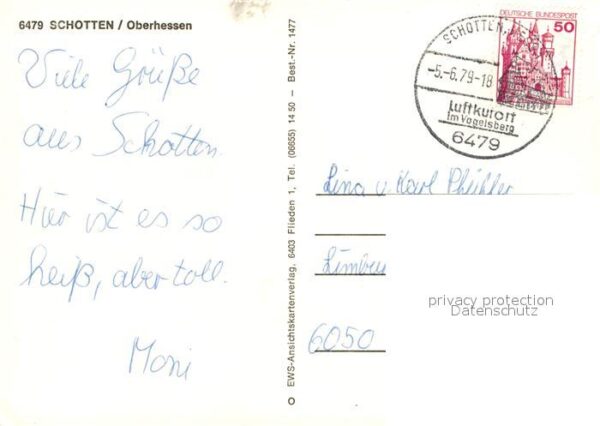 6479 SCHOTTEN / Oberhessen
Viele Grüße
aus Schotten.
Hier ist es so
heiß, aber toll.
Moni
EWS-Ansichtskartenverlag, 6403 Flieden 1, Tel. (06655) 14 50 – Best.-Nr. 1477
DEUTSCHE BUNDESPOST
50
SCHOTTEN
-5.-6.79-18
Luftkurort
im Vogelsberg
6479
Lina u. Karl
6050
privacy protection
Datenschutz